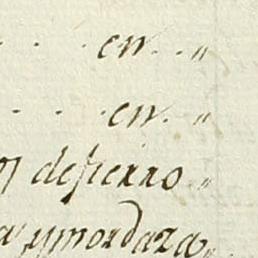 . . . en . . "
. . . en . . "
de fierro . "
y mordaza "